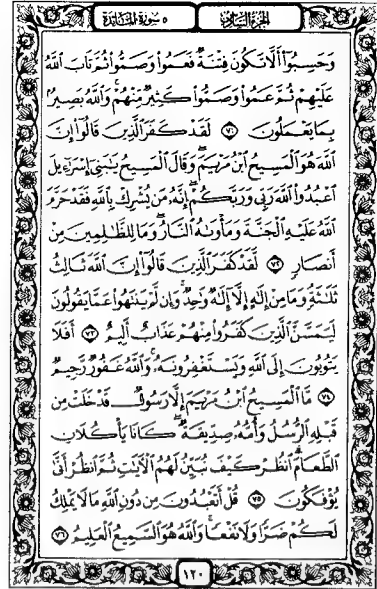 الجزء السادس ٥ سورة المائدة
وَحَسِبُوٓا۟ أَلَّا تَكُونَ فِتْنَةٌ فَعَمُوا۟ وَصَمُّوا۟ ثُمَّ تَابَ ٱللَّهُ
عَلَيْهِمْ ثُمَّ عَمُوا۟ وَصَمُّوا۟ كَثِيرٌ مِّنْهُمْ ۚ وَٱللَّهُ بَصِيرٌۢ
بِمَا يَعْمَلُونَ ٧١ لَقَدْ كَفَرَ ٱلَّذِينَ قَالُوٓا۟ إِنَّ
ٱللَّهَ هُوَ ٱلْمَسِيحُ ٱبْنُ مَرْيَمَ ۖ وَقَالَ ٱلْمَسِيحُ يَٰبَنِىٓ إِسْرَٰٓءِيلَ
ٱعْبُدُوا۟ ٱللَّهَ رَبِّى وَرَبَّكُمْ ۖ إِنَّهُۥ مَن يُشْرِكْ بِٱللَّهِ فَقَدْ حَرَّمَ
ٱللَّهُ عَلَيْهِ ٱلْجَنَّةَ وَمَأْوَىٰهُ ٱلنَّارُ ۖ وَمَا لِلظَّٰلِمِينَ مِنْ
أَنصَارٍ ٧٢ لَّقَدْ كَفَرَ ٱلَّذِينَ قَالُوٓا۟ إِنَّ ٱللَّهَ ثَالِثُ
ثَلَٰثَةٍ وَمَا مِنْ إِلَٰهٍ إِلَّآ إِلَٰهٌ وَٰحِدٌ ۚ وَإِن لَّمْ يَنتَهُوا۟ عَمَّا يَقُولُونَ
لَيَمَسَّنَّ ٱلَّذِينَ كَفَرُوا۟ مِنْهُمْ عَذَابٌ أَلِيمٌ ٧٣ أَفَلَا
يَتُوبُونَ إِلَى ٱللَّهِ وَيَسْتَغْفِرُونَهُۥ ۚ وَٱللَّهُ غَفُورٌ رَّحِيمٌ
٧٤ مَّا ٱلْمَسِيحُ ٱبْنُ مَرْيَمَ إِلَّا رَسُولٌ قَدْ خَلَتْ مِن
قَبْلِهِ ٱلرُّسُلُ وَأُمُّهُۥ صِدِّيقَةٌ ۖ كَانَا يَأْكُلَانِ
ٱلطَّعَامَ ۗ ٱنظُرْ كَيْفَ نُبَيِّنُ لَهُمُ ٱلْءَايَٰتِ ثُمَّ ٱنظُرْ أَنَّىٰ
يُؤْفَكُونَ ٧٥ قُلْ أَتَعْبُدُونَ مِن دُونِ ٱللَّهِ مَا لَا يَمْلِكُ
لَكُمْ ضَرًّا وَلَا نَفْعًا ۚ وَٱللَّهُ هُوَ ٱلسَّمِيعُ ٱلْعَلِيمُ ٧٦
١٢٠